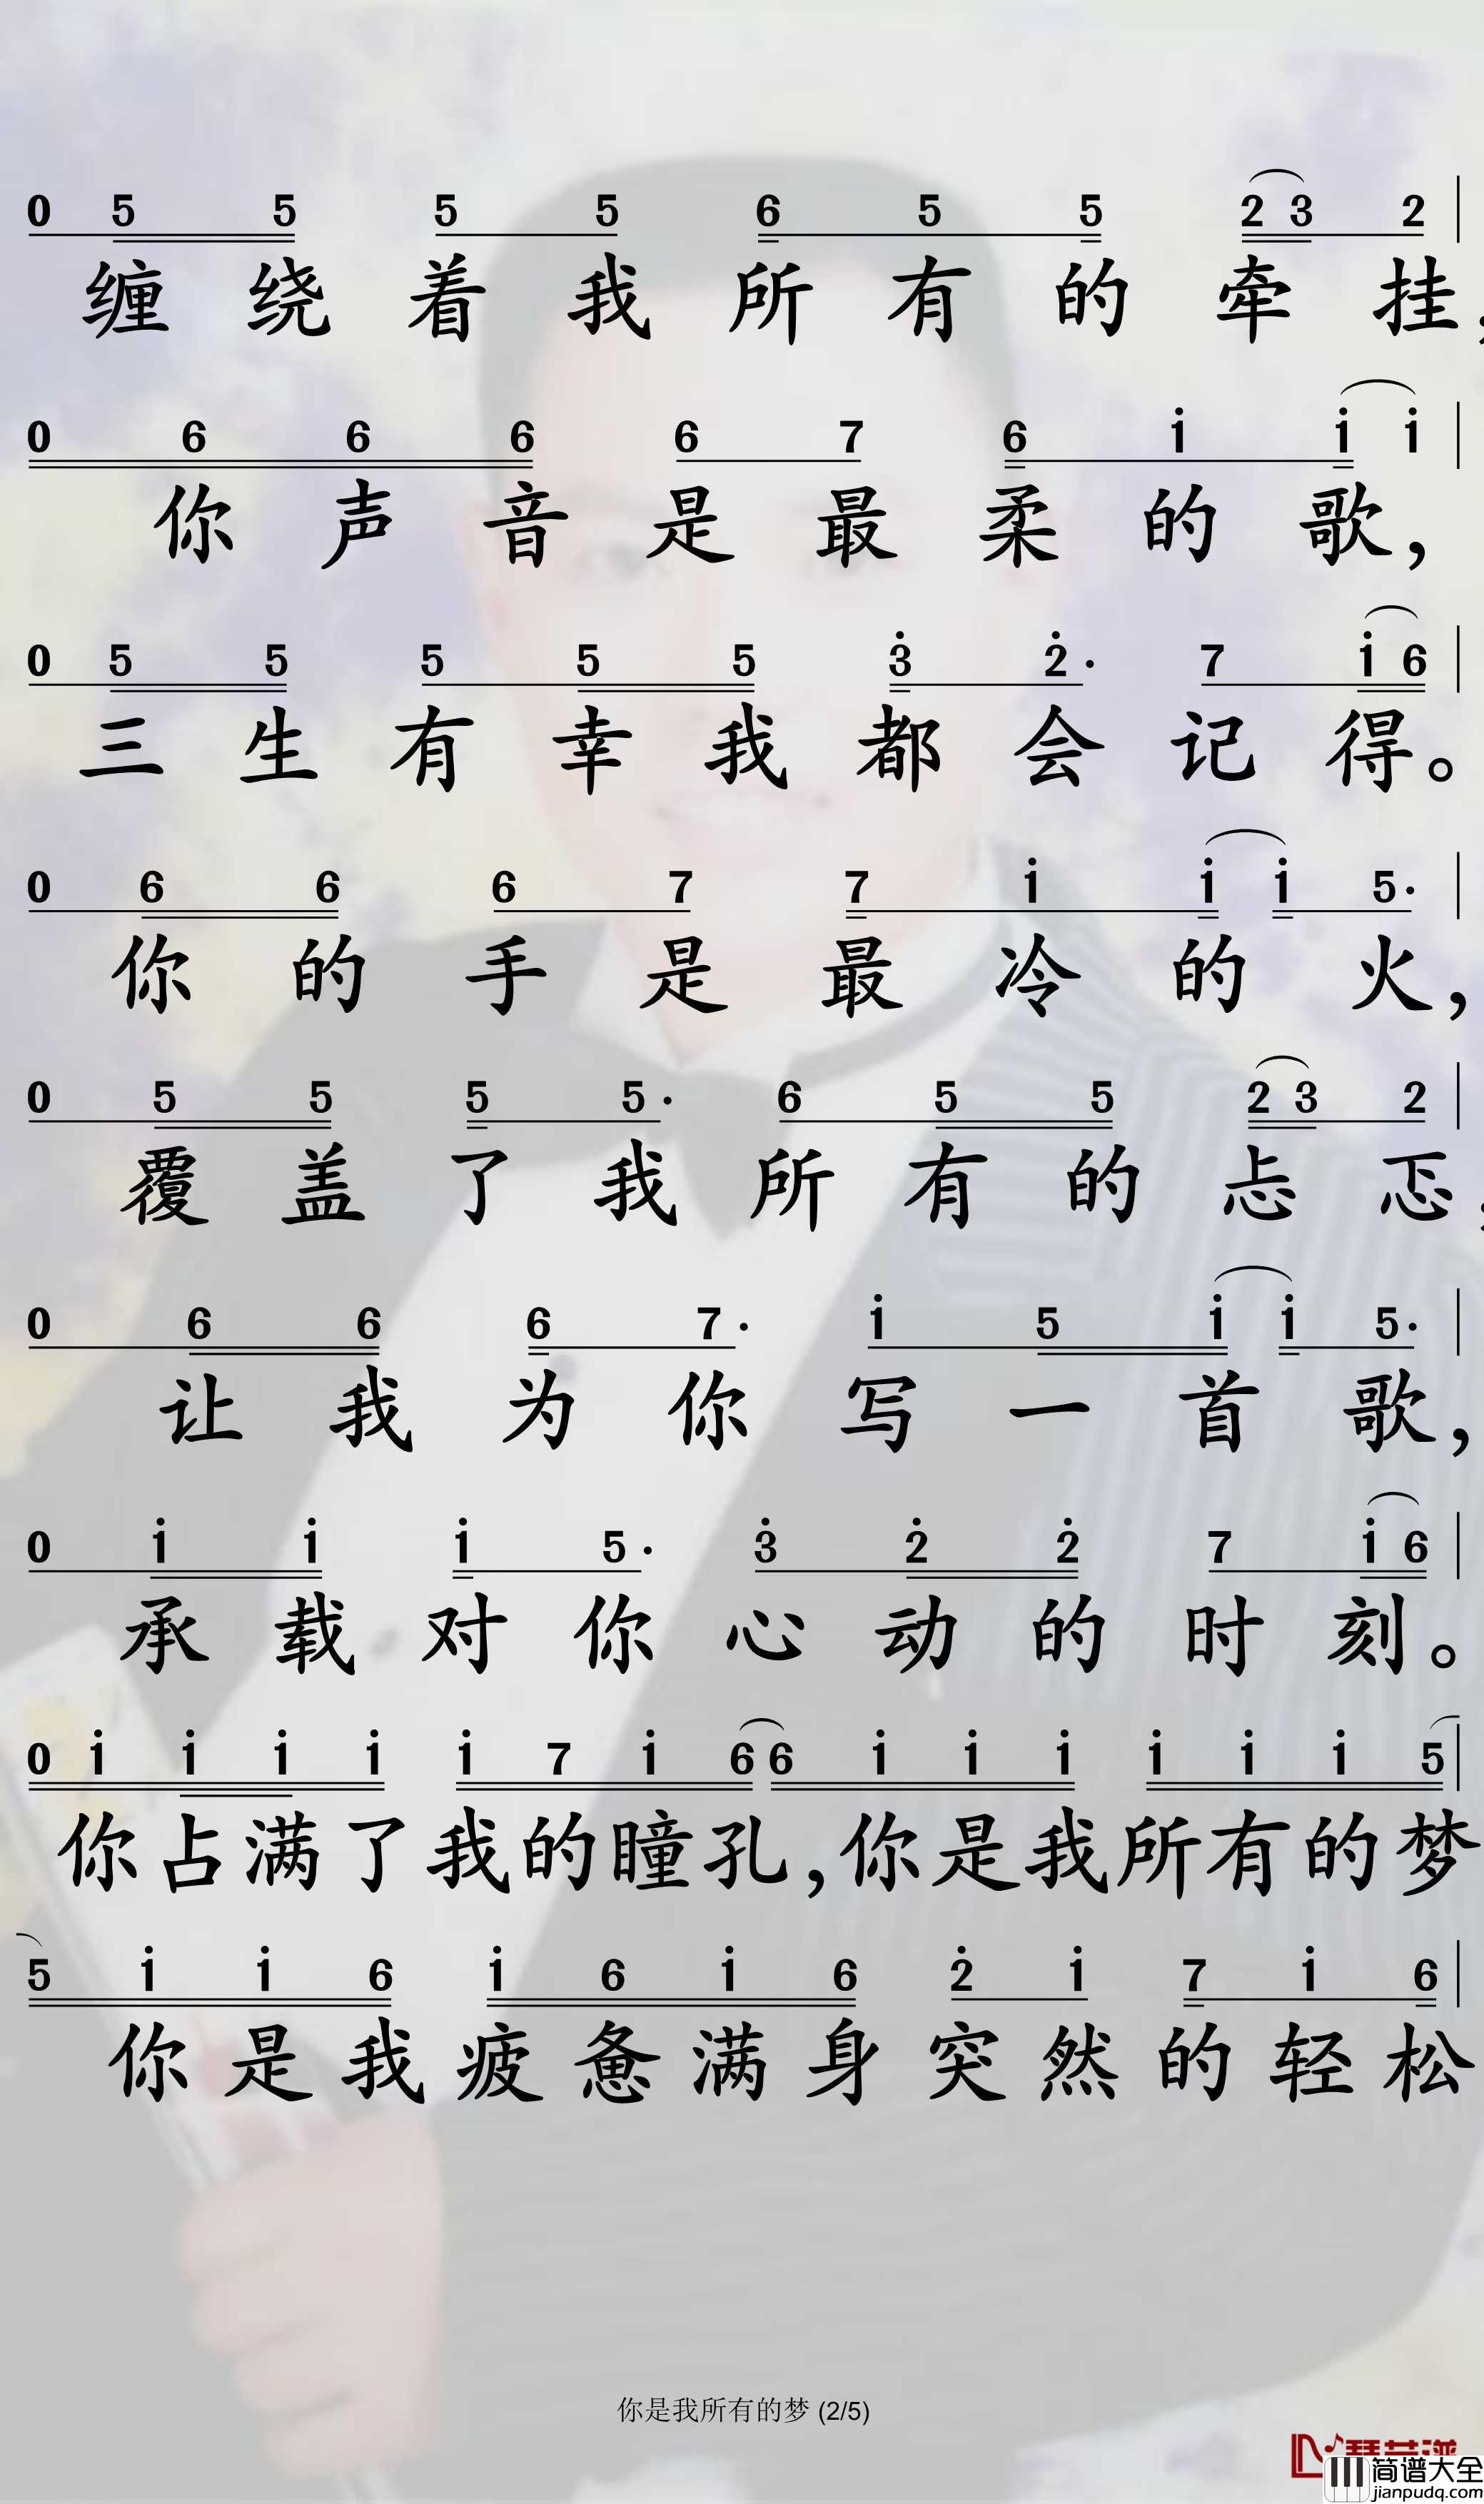 0 5 5 5 5 6 5 5 2 3 2
缠绕着我所有的牵挂,
0 6 6 6 6 7 6 i i i
你声音是最柔的歌,
0 5 5 5 5 5 3 2· 7 i 6
三生有幸我都会记得。
0 6 6 6 7 7 i i i 5·
你的手是最冷的火,
0 5 5 5 5· 6 5 5 2 3 2
覆盖了我所有的忐忑,
0 6 6 6 7· i 5 i i 5·
让我为你写一首歌,
0 i i i 5· 3 2 2 7 i 6
承载对你心动的时刻。
0 i i i i i 7 i 6 6 i i i i i i 5
你占满了我的瞳孔,你是我所有的梦
5 i i 6 i 6 i 6 2 i 7 i 6
你是我疲惫满身突然的轻松
你是我所有的梦 (2/5)
简谱大全
jianpudq.com